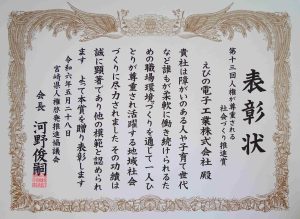 表彰状
第十三回人権が尊重される
社会づくり推進賞
えびの電子工業株式会社 殿
貴社は障がいのある人や子育て世代
など誰もが柔軟に働き続けられるた
めの職場環境づくりを通じて一人ひ
とりが尊重され活躍する地域社会
づくりに尽力されました その功績は
誠に顕著であり他の模範と認められ
ます よって本賞を贈り表彰します
令和六年五月二十八日
宮崎県人権啓発推進協議会
会長 河野俊嗣